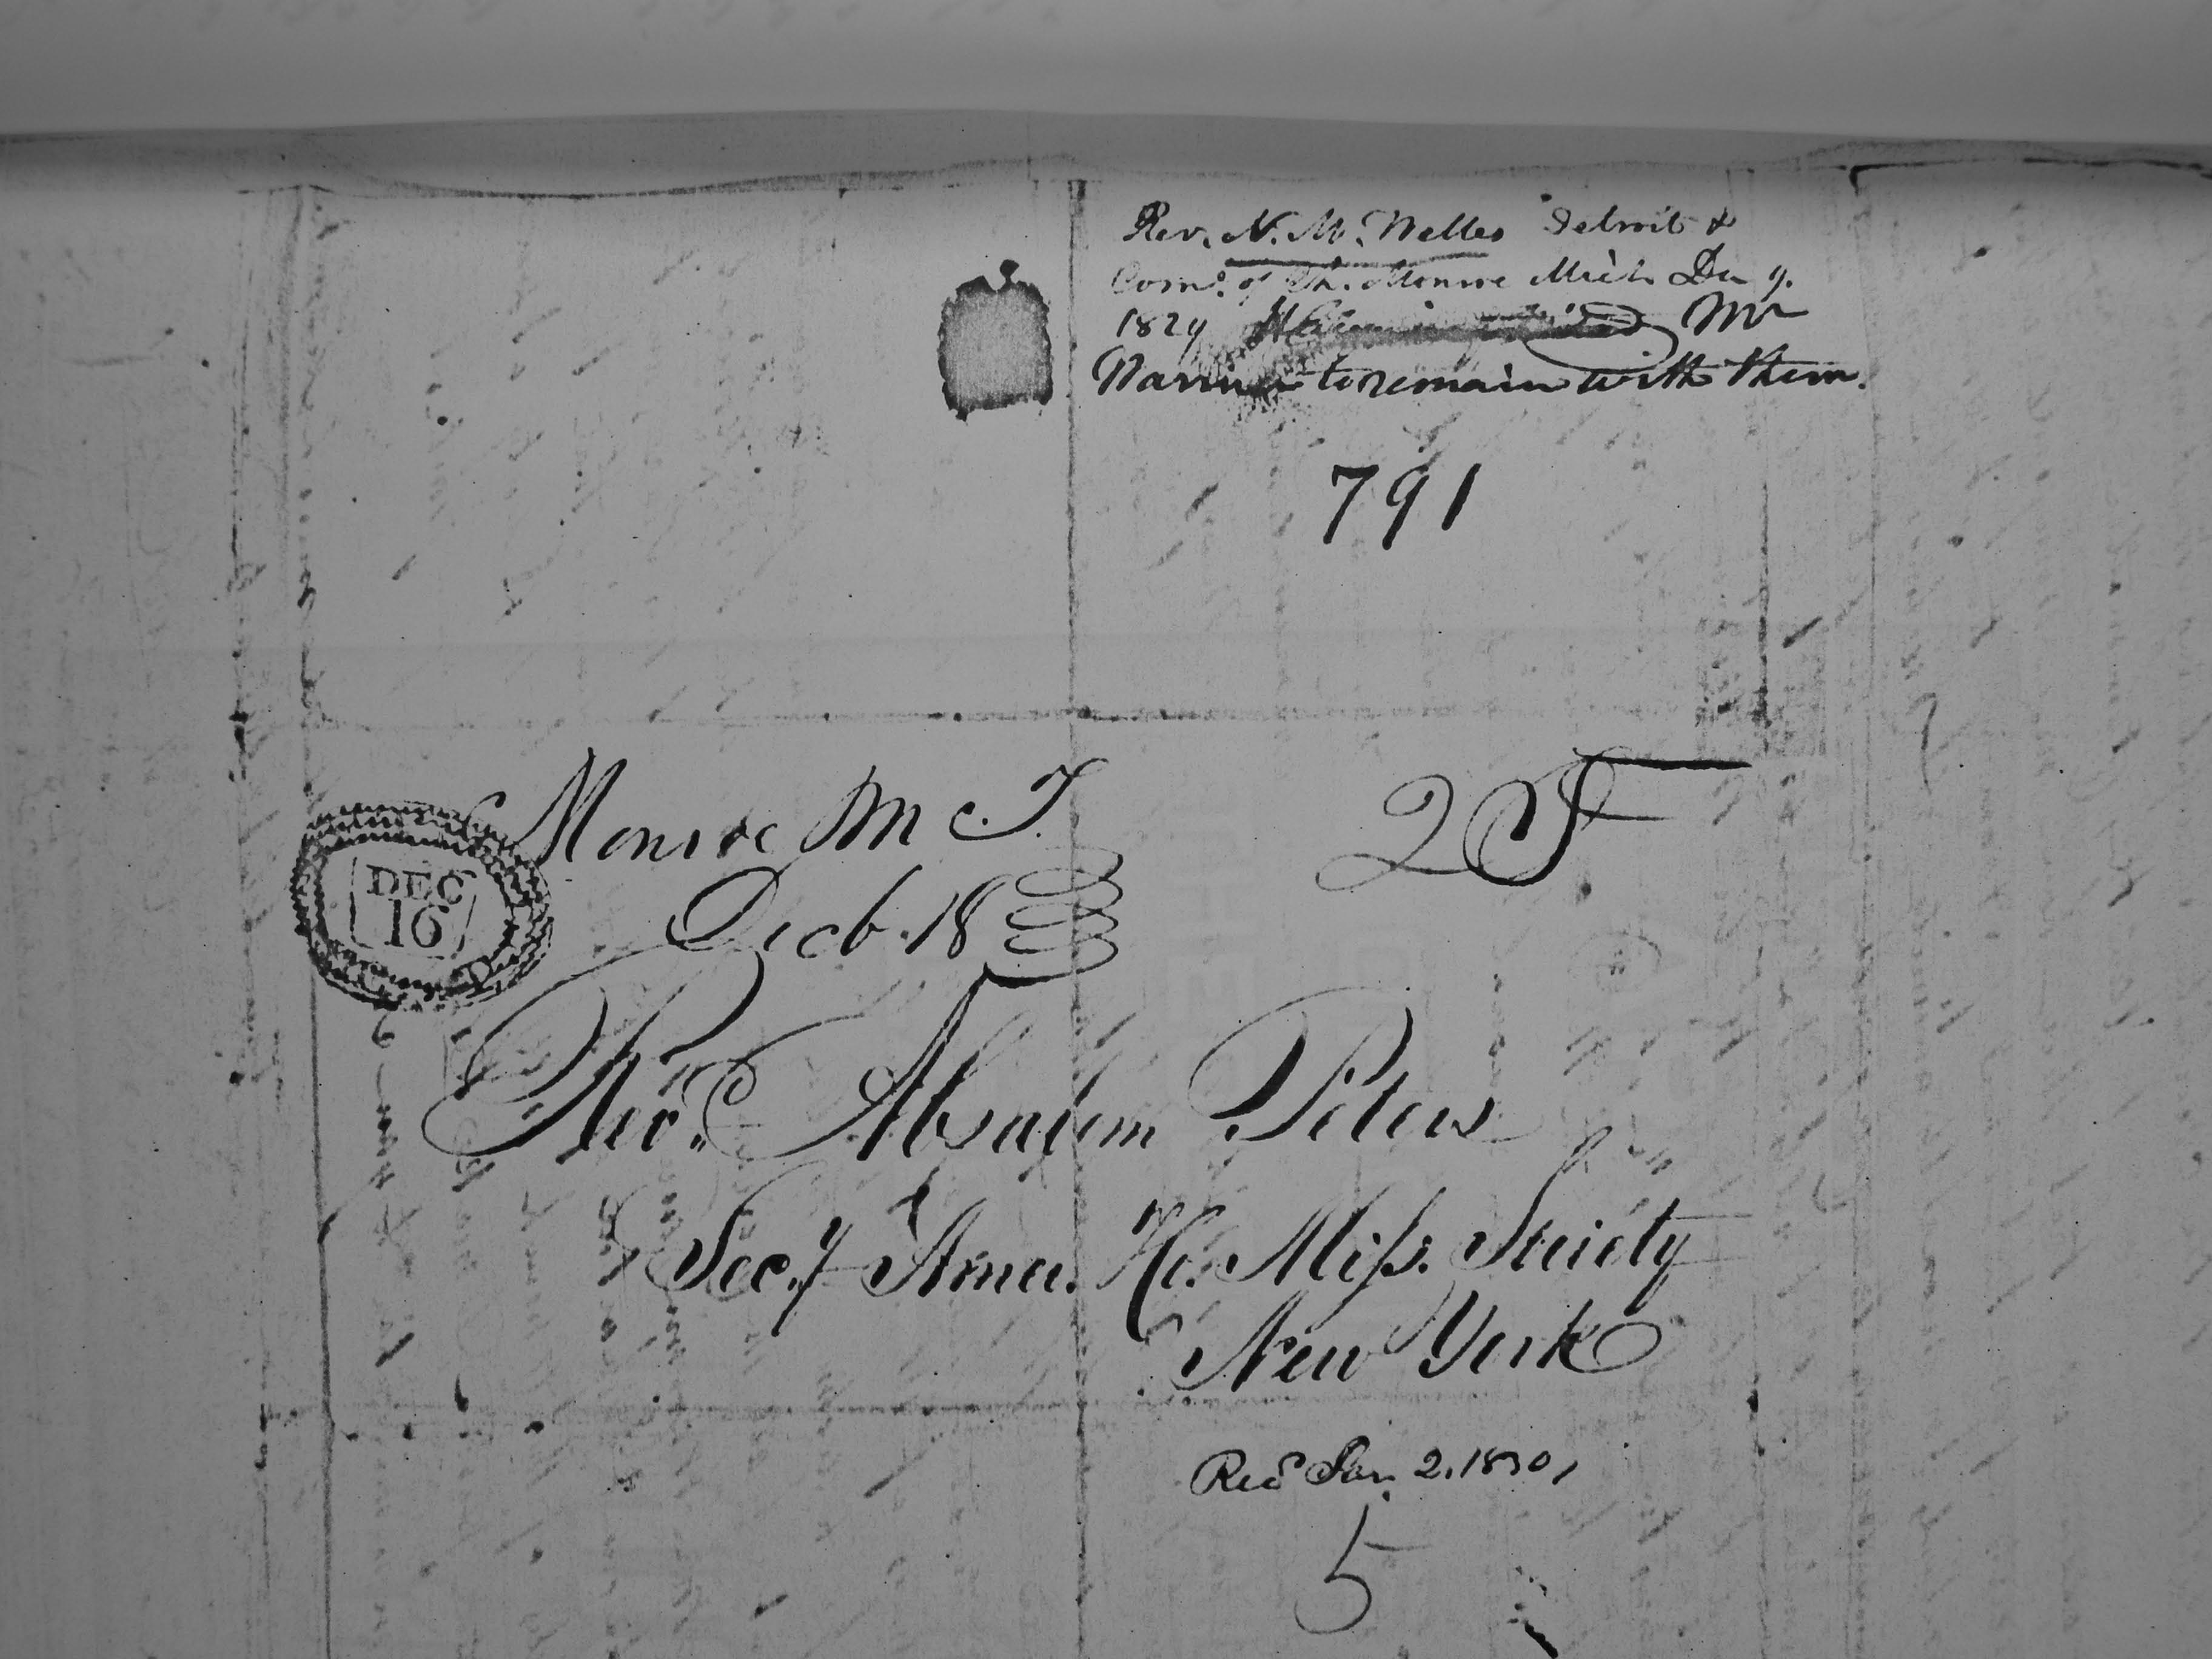 Rev. N. M. Welles Detroit &
Com.e of Ch. Monroe Mich De 9.
1829 Mr
to remain with them.
791
Monroe M.T.
Decb. 18
25
DEC
16
Rev.d Absalem Peters
Sec.y Amer. Ho. Miſs. Society
New York
Recd Jan. 2. 1830,
5